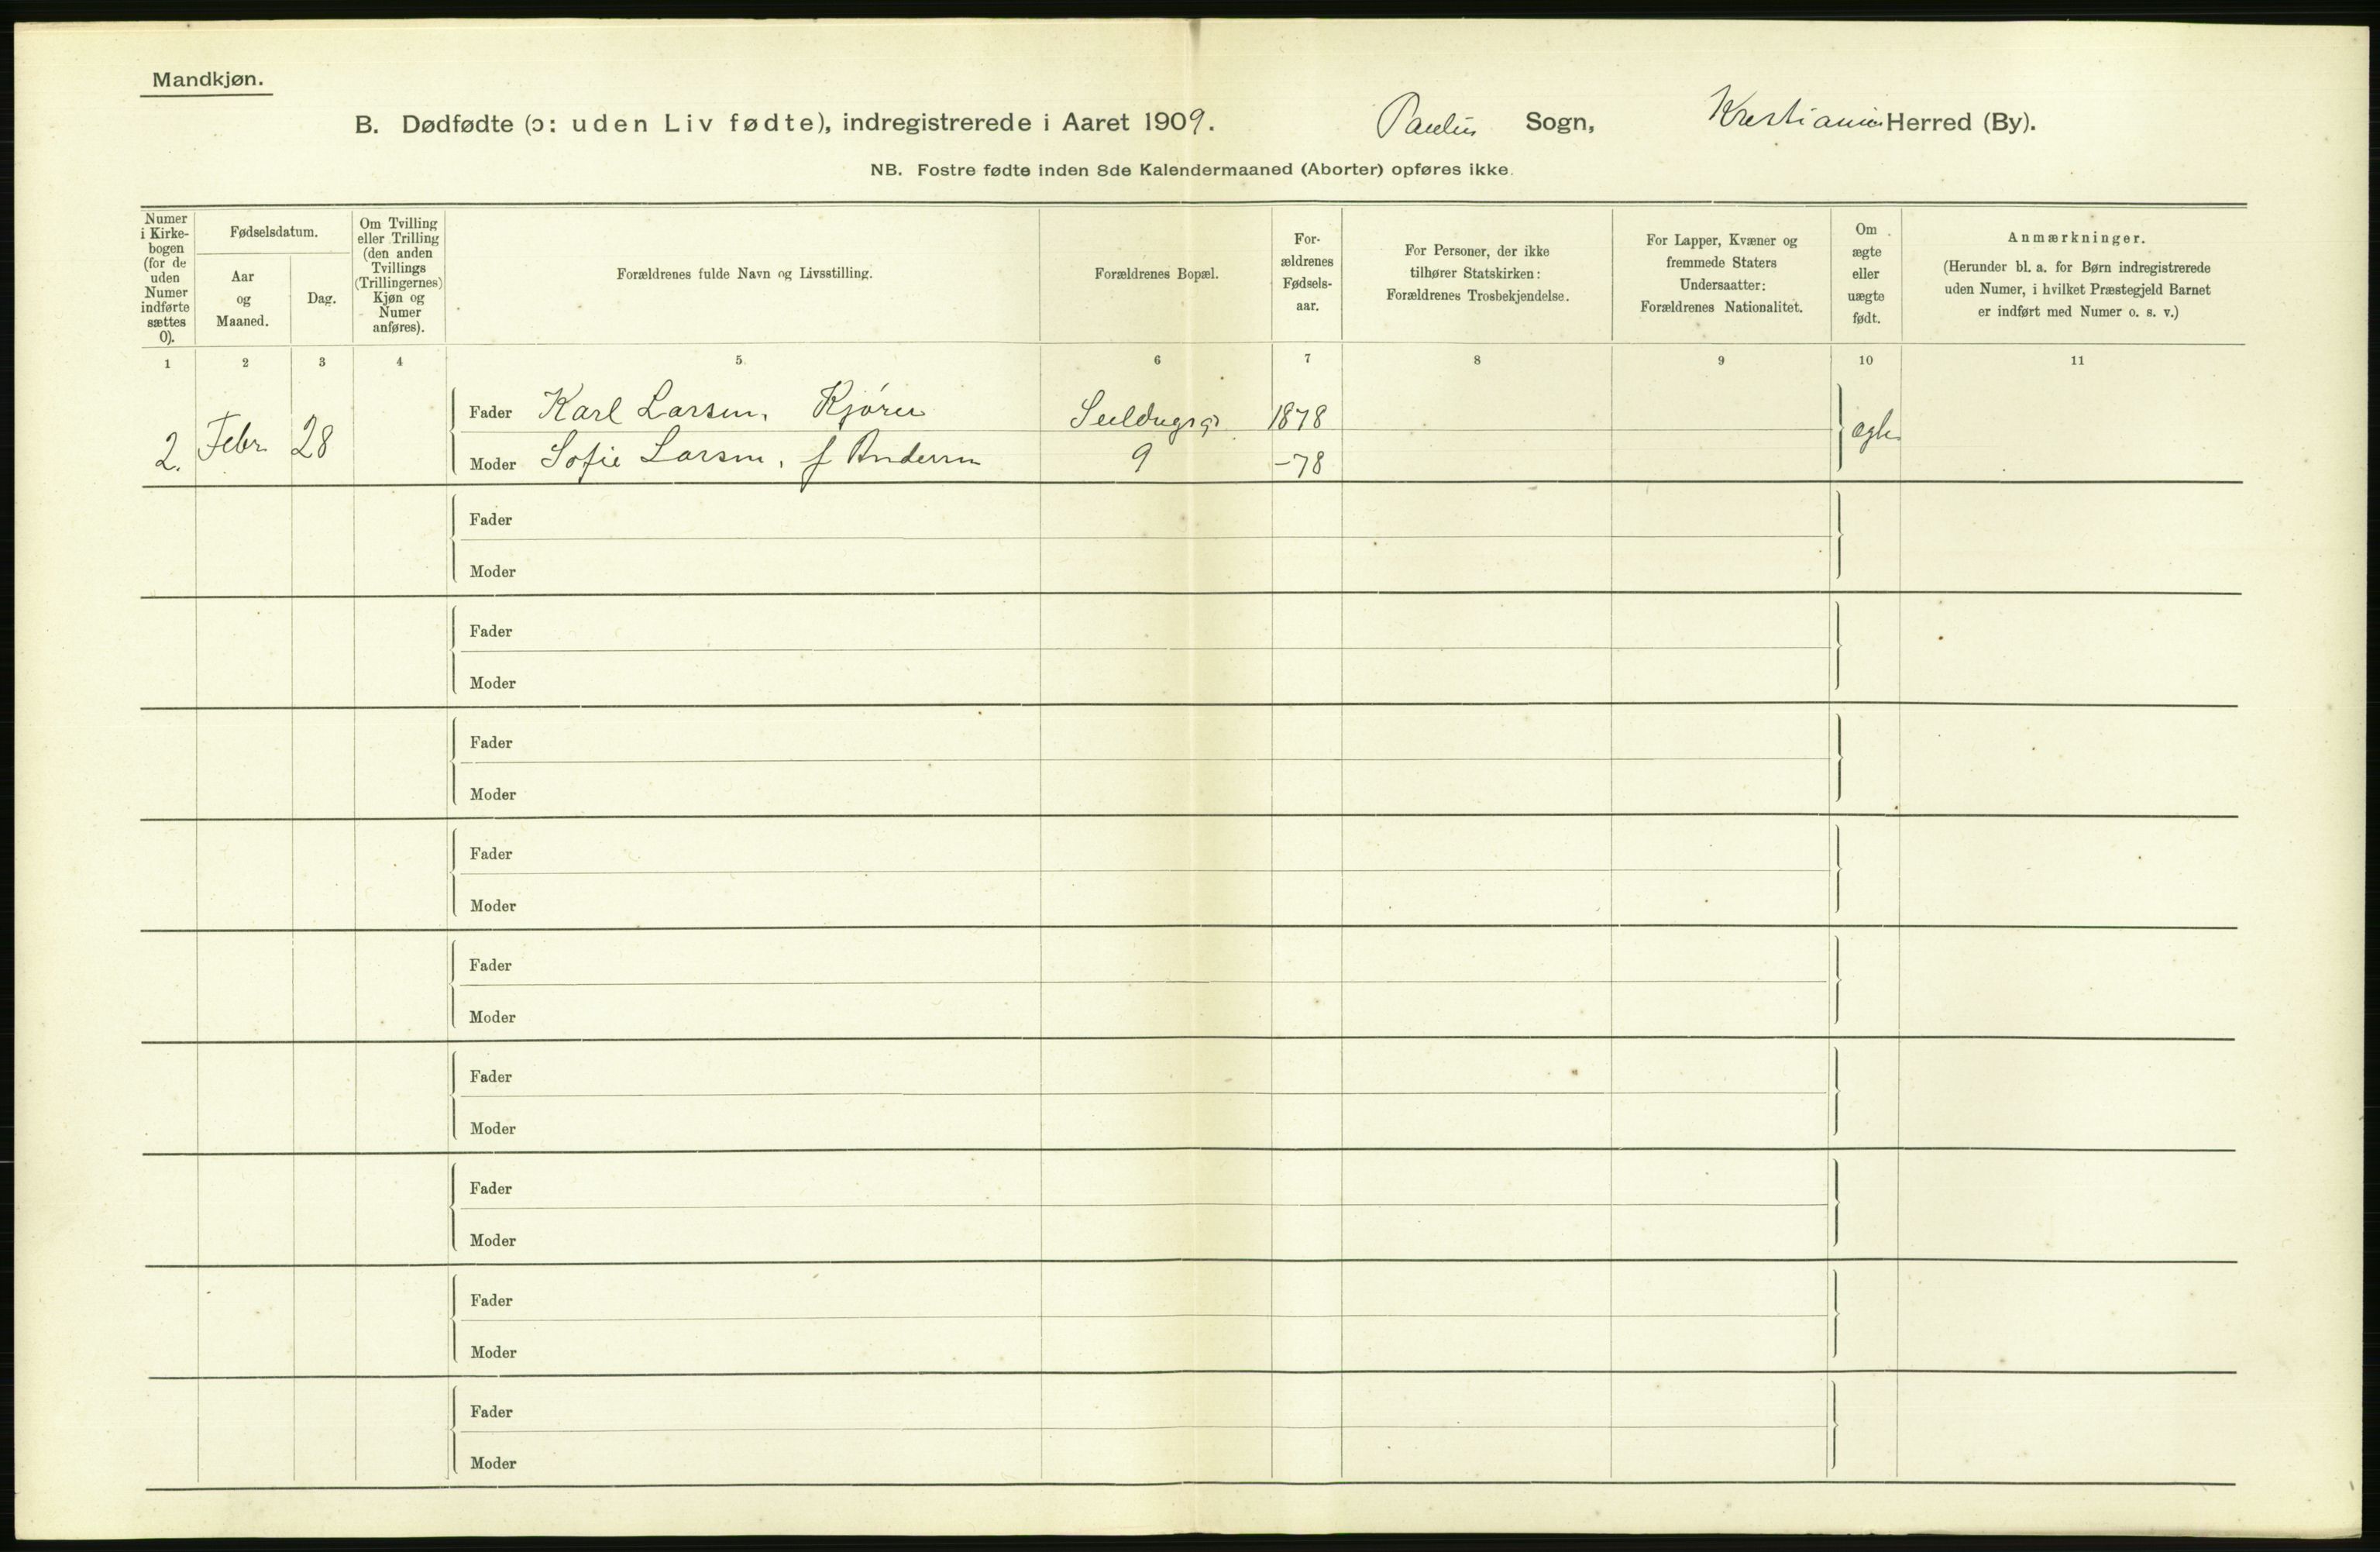 Mandkjøn.
B. Dødfødte (ɔ: uden Liv fødte), indregistrerede i Aaret 1909. Paulus Sogn, Kristiania Herred (By).
NB. Fostre fødte inden 8de Kalendermaaned (Aborter) opføres ikke.
Numer i Kirkebogen (for de uden Numer indførte sættes 0).
Fødselsdatum.
Aar og Maaned.
Dag.
Om Tvilling eller Trilling (den anden Tvillings (Trillingernes) Kjøn og Numer anføres).
Forældrenes fulde Navn og Livsstilling.
Forældrenes Bopæl.
For-ældrenes Fødsels-aar.
For Personer, der ikke tilhører Statskirken: Forældrenes Trosbekjendelse.
For Lapper, Kvæner og fremmede Staters Undersaatter: Forældrenes Nationalitet.
Om ægte eller uægte født.
Anmærkninger.
(Herunder bl. a. for Børn indregistrerede uden Numer, i hvilket Præstegjeld Barnet er indført med Numer o. s. v.)
1 2 3 4 5 6 7 8 9 10 11
2. Febr 28
Fader Karl Larsen, Kjører Seildugsg 1878 ægte
Moder Sofie Larsen, f Andersen 9 -78
Fader
Moder
Fader
Moder
Fader
Moder
Fader
Moder
Fader
Moder
Fader
Moder
Fader
Moder
Fader
Moder
Fader
Moder